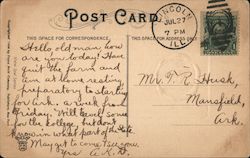 POST CARD
THIS SPACE FOR CORRESPONDENCE.
LINCOLN
JUL 27
7 PM
ILL.
Hello, old man, how
are you today! Have
quit the farm and
am at home resting
preparatory to starting
for Ark. a week from
Friday. Will travel some
for the college, but don't
know in what part of the
May get to come to see you.
Yrs
Mr. T. R. Husk,
Mansfield,
Ark.